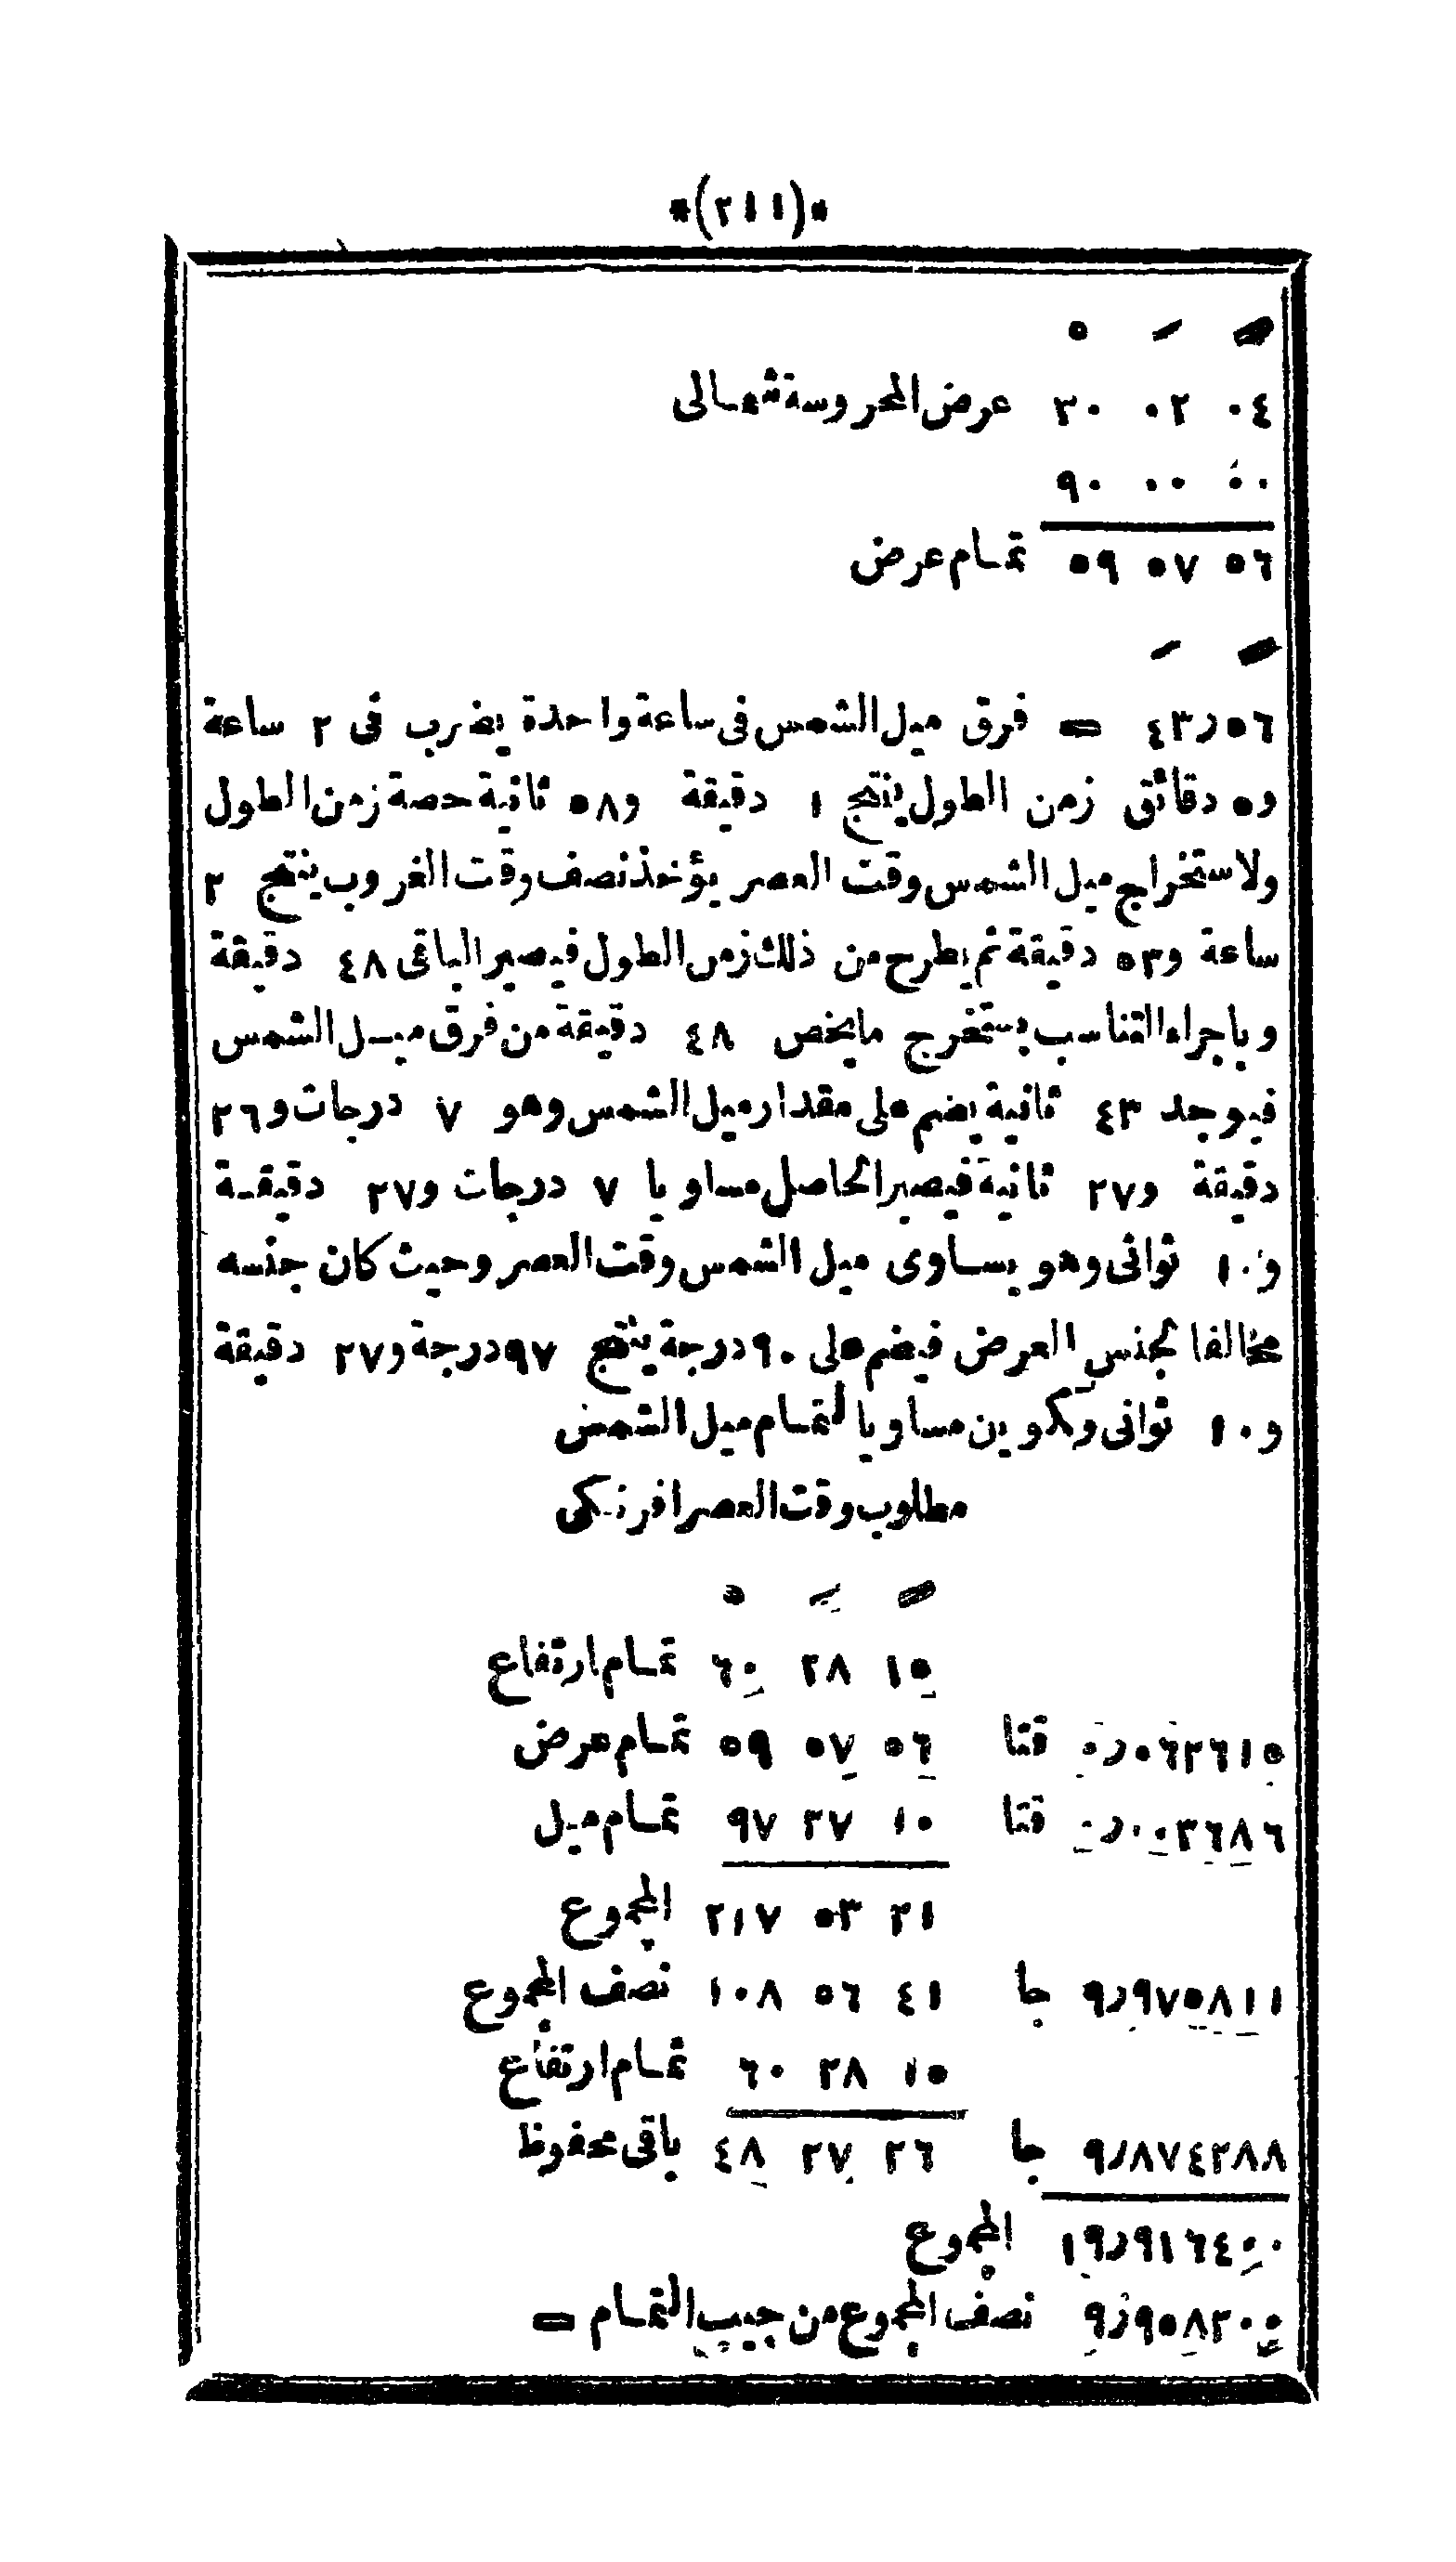 *(٢١١)*
٣٠ ٠٢ ٠٤ عرض المحروسة شمالى
٩٠ ٠٠ ٠٠
٥٩ ٥٧ ٥٦ تمام عرض
٤٣ر٥٦ = فرق ميل الشمس فى ساعة واحدة يضرب فى ٢ ساعة
و٥ دقائق زمن الطول ينتج ١ دقيقة و٥٨ ثانية حصة زمن الطول
ولاستخراج ميل الشمس وقت العصر يؤخذ نصف وقت الغروب ينتج ٢
ساعة و٥٣ دقيقة ثم يطرح من ذلك زمن الطول فيصير الباقى ٤٨ دقيقة
وباجراء التناسب يستخرج مايخص ٤٨ دقيقة من فرق ميل الشمس
فيوجد ٤٣ ثانية يضم على مقدار ميل الشمس وهو ٧ درجات و٢٦
دقيقة و٢٧ ثانية فيصير الحاصل مساويا ٧ درجات و٢٧ دقيقة
و١٠ ثوانى وهو يساوى ميل الشمس وقت العصر وحيث كان جنسه
مخالفا لجنس العرض فيضم على ٩٠ درجة ينتج ٩٧ درجة و٢٧ دقيقة
و١٠ ثوانى وتكوين مساويا لتمام ميل الشمض
مطلوب وقت العصر افرنكى
٦٠ ٢٨ ١٥ تمام ارتفاع
٠ر٠٦٢٦١٥ قتا ٥٩ ٥٧ ٥٦ تمام عرض
٠ر٠٠٣٦٨٦ قتا ٩٧ ٢٧ ١٠ تمام ميل
٢١٧ ٥٣ ٢١ المجموع
٩ر٩٧٥٨١١ جا ١٠٨ ٥٦ ٤١ نصف المجموع
٦٠ ٢٨ ١٥ تمام ارتفاع
٩ر٨٧٤٢٨٨ جا ٤٨ ٢٧ ٢٦ باقى محفوظ
١٩ر٩١٦٤٠٠ المجموع
٩ر٩٥٨٢٠٠ نصف المجموع من جيب التمام =